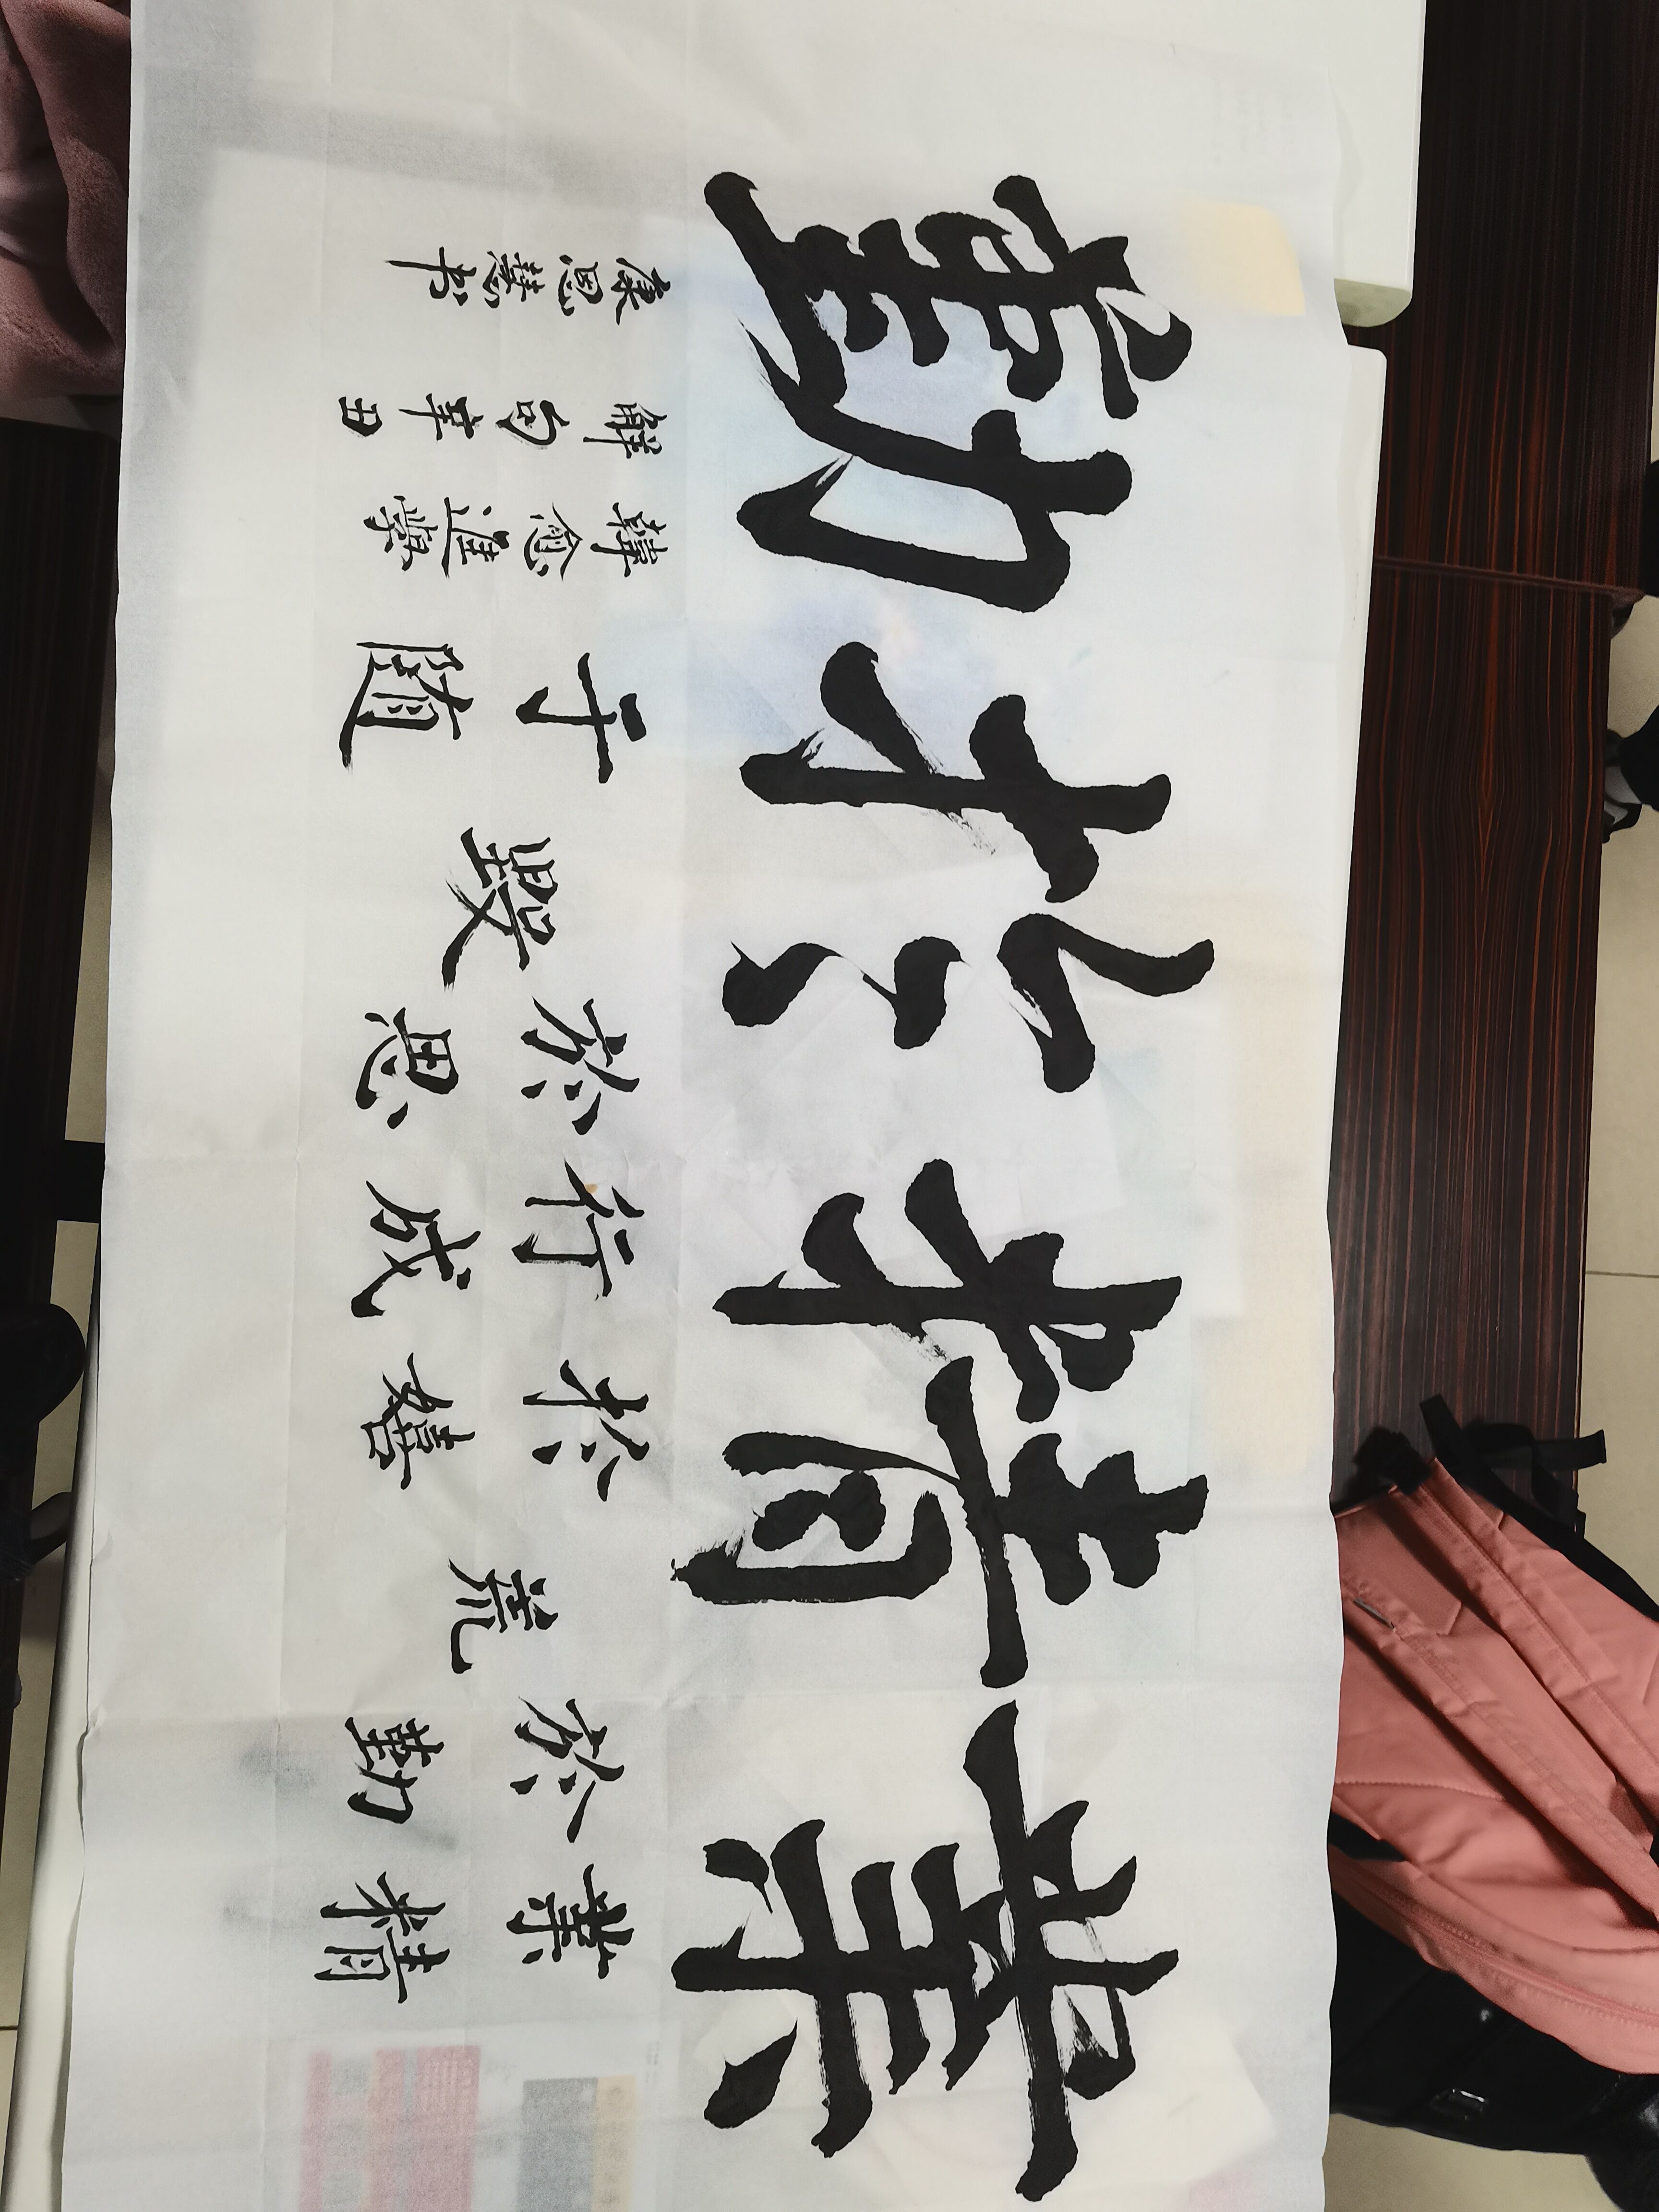 業精於勤
業精
於勤
荒
於嬉
行成
於思
毁
于随
韓愈進學
解句辛丑
康恩慧书